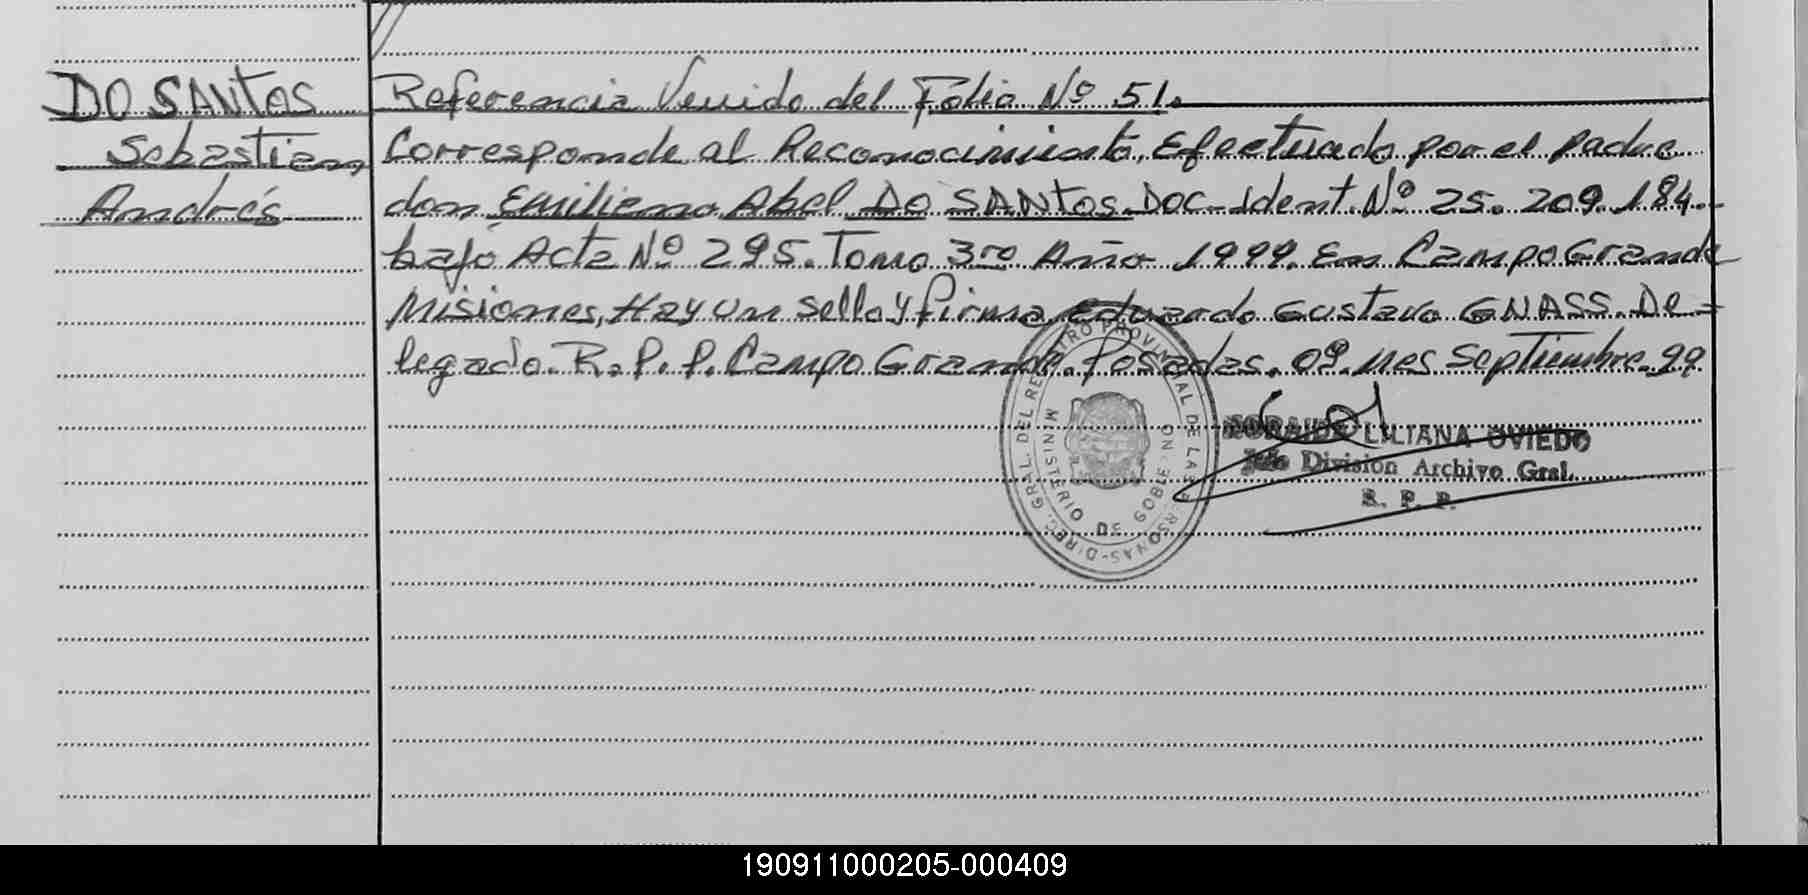 DO SANTOS
Sebastian
Andrés
Referencia Venido del Folio Nº 51.
Corresponde al Reconocimiento, Efectuado por el padre
don Emiliano Abel DO SANTOS. DOC-Ident. Nº 25.209.184.
bajo Acta Nº 295. Tomo 3ro Año 1999. En Campo Grande
Misiones, Hay un sello y firma Eduardo Gustavo GNASS. De-
legado. R.P.P. Campo Grande. Posadas. 09. mes Septiembre. 99
DIREC. GRAL. DEL REGISTRO PROVINCIAL DE LAS PERSONAS
MINISTERIO DE GOBIERNO
LILIANA OVIEDO
Jefe División Archivo Gral.
R. P. P.
190911000205-000409